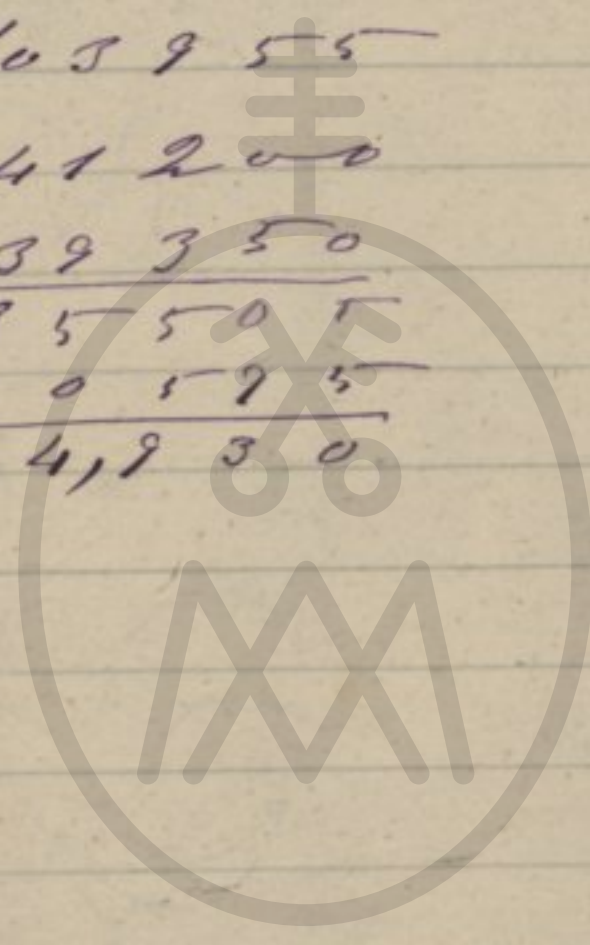 03955
41200
39350
5505
0575
4,930